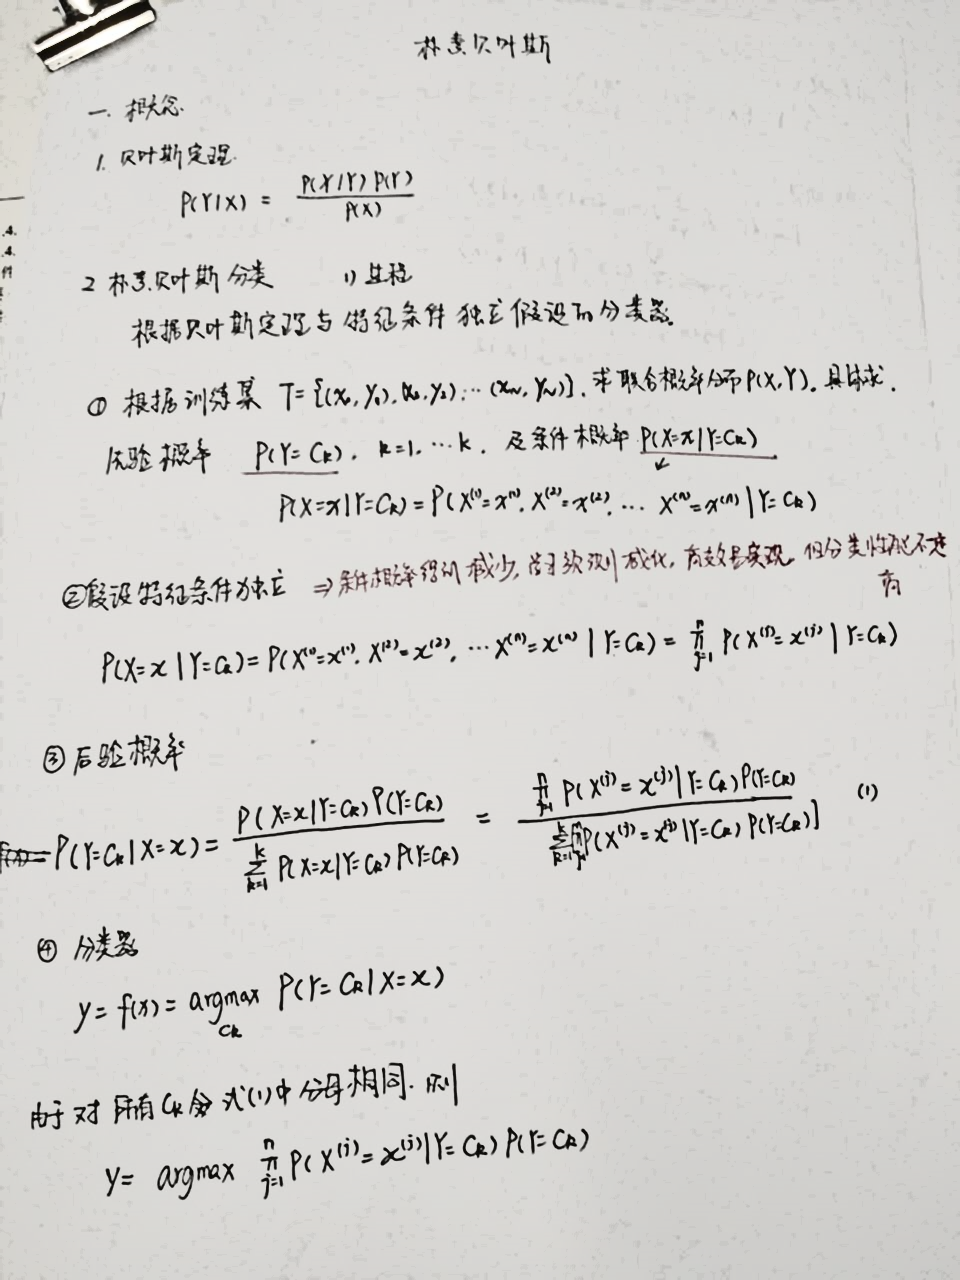 朴素贝叶斯
一. 概念
1. 贝叶斯定理.
P(Y|X) = P(X|Y) P(Y) / P(X)
.4.
.4.
件
2 朴素贝叶斯分类 1) 过程
根据贝叶斯定理与特征条件独立假设的分类器.
① 根据训练集 T={(x₁,y₁),(x₂,y₂),…(x_N,y_N)}. 求联合概率分布P(X,Y). 具体求.
先验概率 P(Y=C_k), k=1,…k, 及条件概率 P(X=x|Y=C_k)
P(X=x|Y=C_k) = P(X⁽¹⁾=x⁽¹⁾, X⁽²⁾=x⁽²⁾, … X⁽ⁿ⁾=x⁽ⁿ⁾ | Y=C_k)
②假设特征条件为独立 ⇒条件概率 减少, 有效易实现, 但分类性能不
高
P(X=x|Y=C_k) = P(X⁽¹⁾=x⁽¹⁾, X⁽²⁾=x⁽²⁾, …X⁽ⁿ⁾=x⁽ⁿ⁾ | Y=C_k) = ∏_{j=1}^{n} P(X⁽ʲ⁾=x⁽ʲ⁾ | Y=C_k)
③ 后验概率
P(Y=C_k|X=x) = P(X=x|Y=C_k) P(Y=C_k) / ∑_{k=1}^{k} P(X=x|Y=C_k) P(Y=C_k) = ∏_{j=1}^{n} P(X⁽ʲ⁾=x⁽ʲ⁾|Y=C_k) P(Y=C_k) / ∑_{k=1}^{k} [∏_{j=1}^{n} P(X⁽ʲ⁾=x⁽ʲ⁾|Y=C_k) P(Y=C_k)] (1)
④ 分类器
y = f(x) = argmax_{C_k} P(Y=C_k|X=x)
由于对所有C_k 式(1)中分母相同. 则
y = argmax ∏_{j=1}^{n} P(X⁽ʲ⁾=x⁽ʲ⁾|Y=C_k) P(Y=C_k)